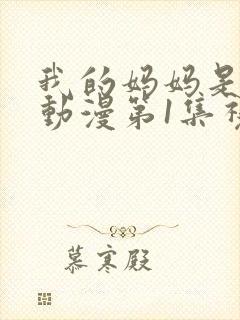 我的妈妈是
動漫第1集
慕寒殿